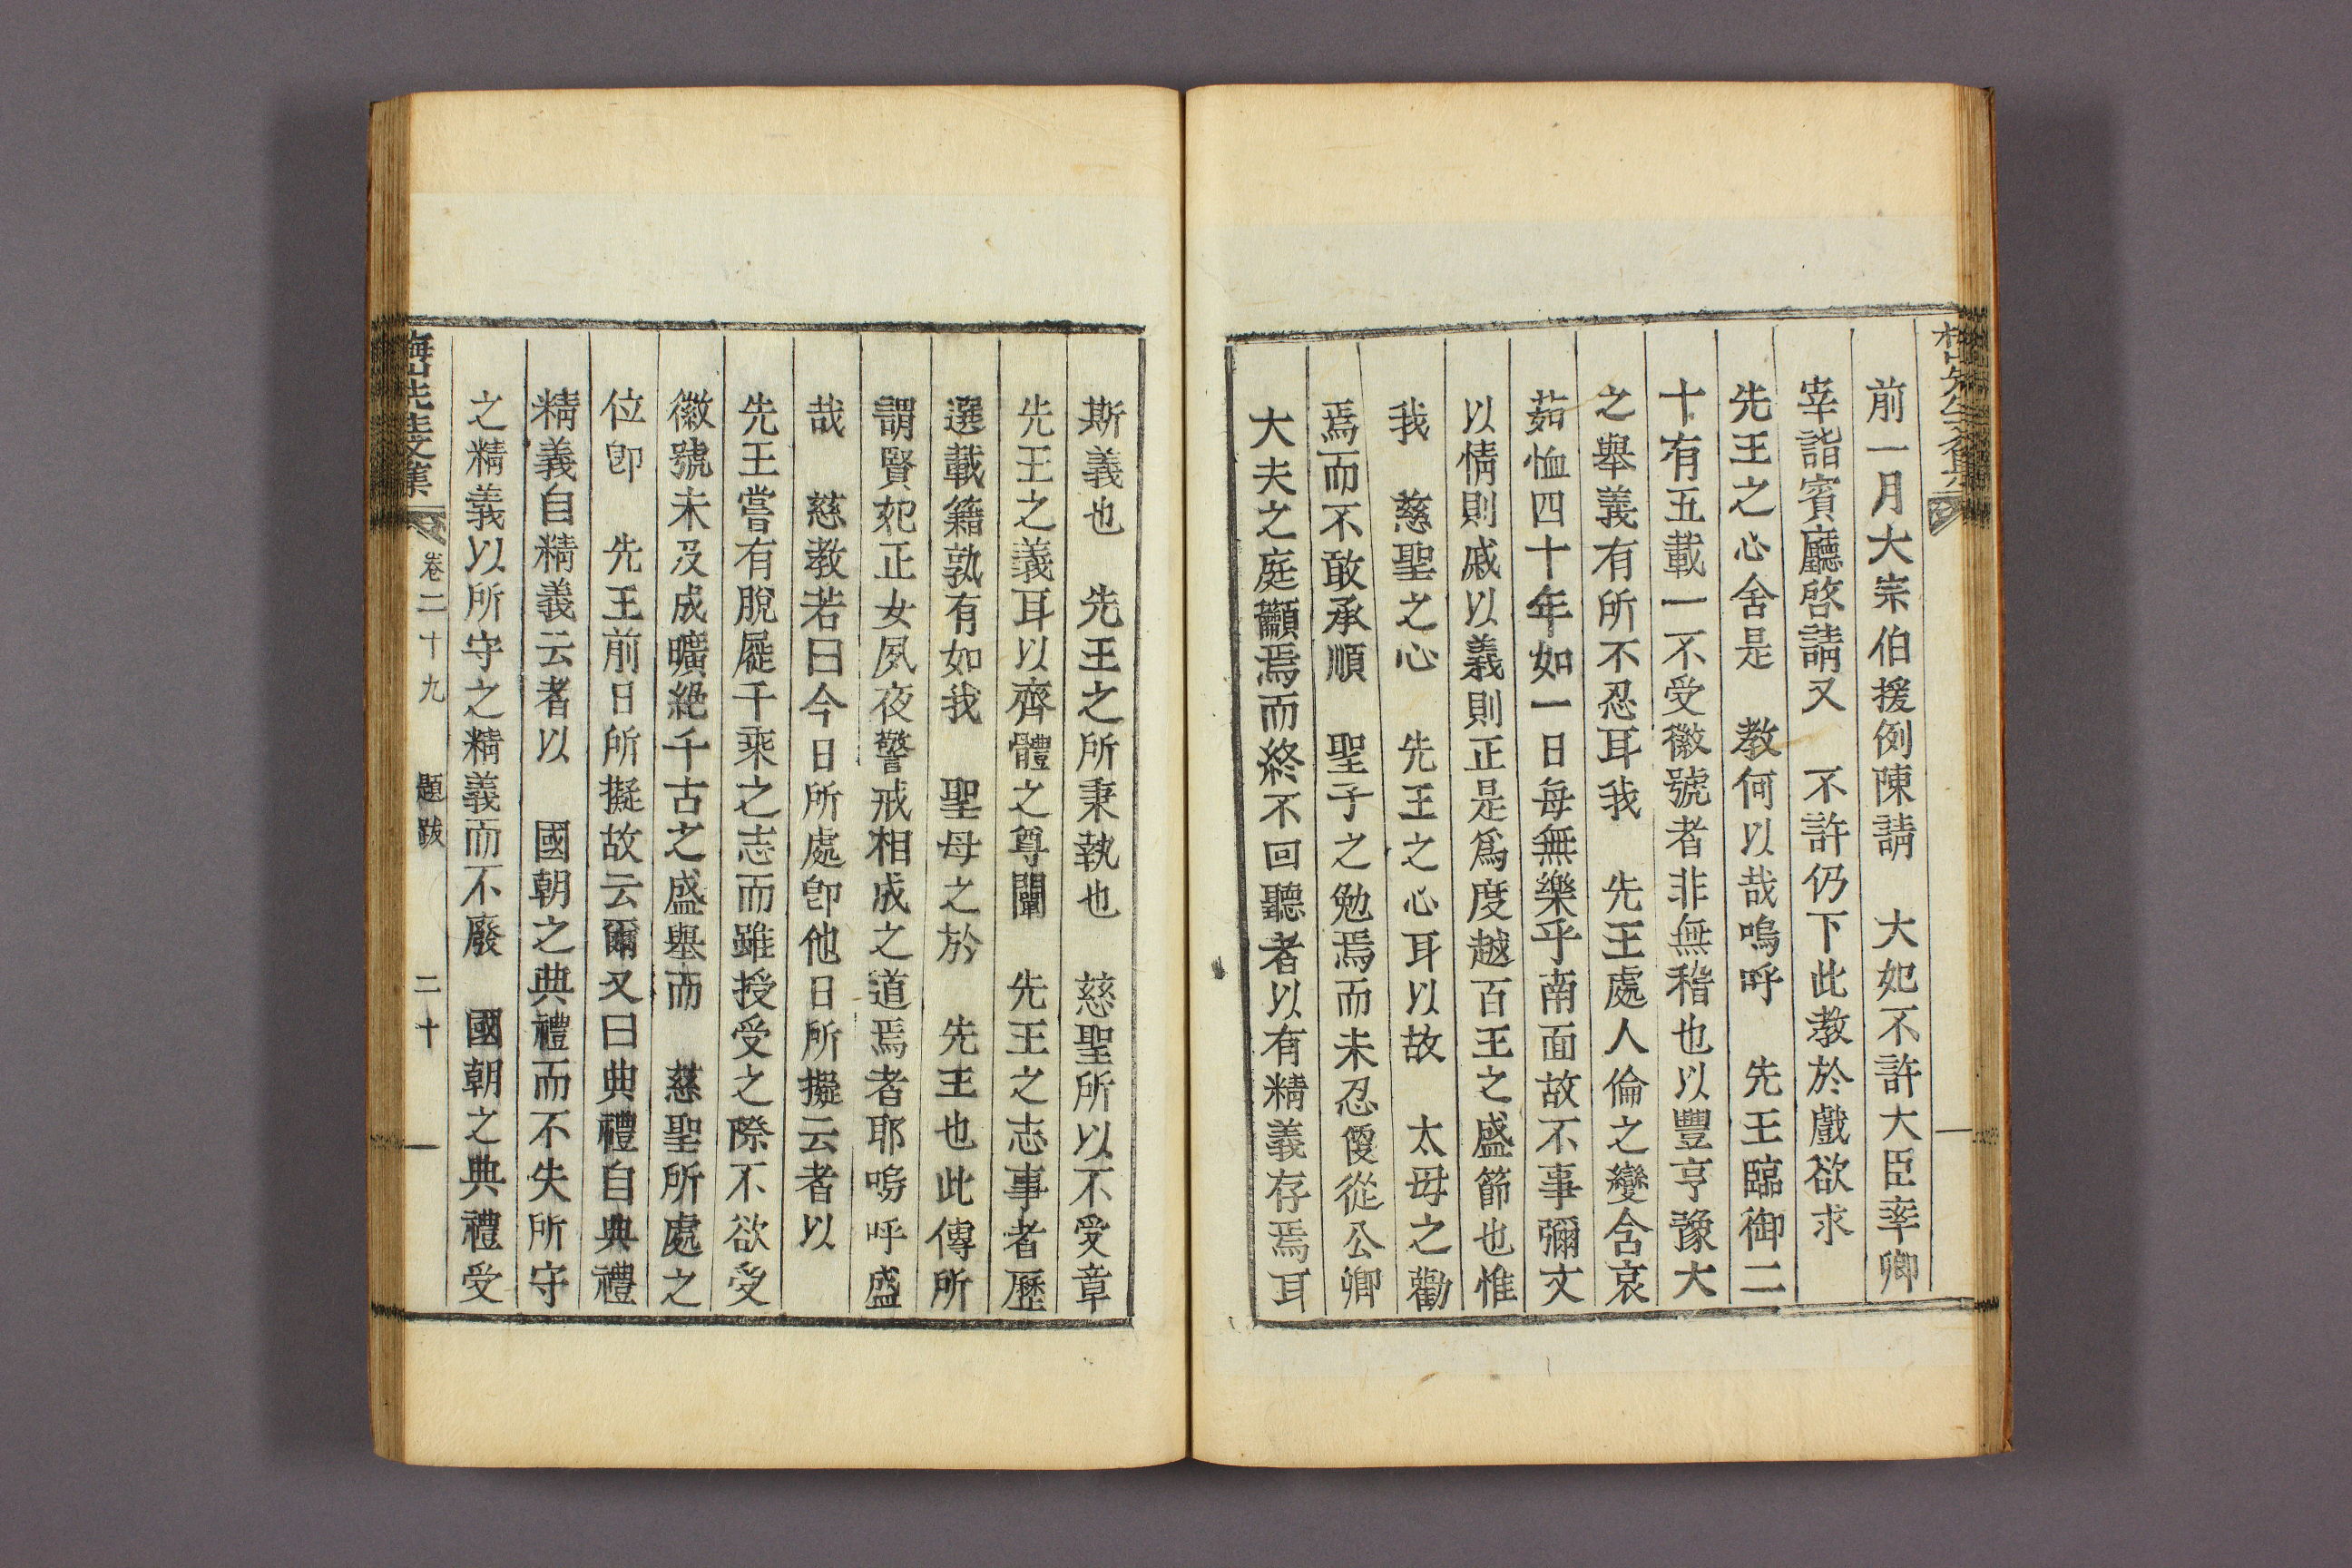 前一月大宗伯援例陳請　大妃不許大臣宰卿
宰詣賓廳啓請又　不許仍下此教於戲欲求
先王之心舍是　教何以哉嗚呼　先王臨御二
十有五載一不受徽號者非無稽也以豐亨豫大
之擧義有所不忍耳我　先王處人倫之變含哀
茹恤四十年如一日每無樂乎南面故不事彌文
以情則戚以義則正是爲度越百王之盛節也惟
我　慈聖之心　先王之心耳以故　太母之勸
焉而不敢承順　聖子之勉焉而未忍優從公卿
大夫之庭籲焉而終不回聽者以有精義存焉耳
斯義也　先王之所秉執也　慈聖所以不受章
先王之義耳以齊體之尊闡　先王之志事者歷
選載籍孰有如我　聖母之於　先王也此傳所
謂賢妃正女夙夜警戒相成之道焉者耶嗚呼盛
哉　慈教若曰今日所處卽他日所擬云者以
先王嘗有脫屣千乘之志而雖授受之際不欲受
徽號未及成曠絶千古之盛擧而　慈聖所處之
位卽　先王前日所擬故云爾又曰典禮自典禮
精義自精義云者以　國朝之典禮而不失所守
之精義以所守之精義而不廢　國朝之典禮受
梅山先生文集　卷二十九　題跋　二十